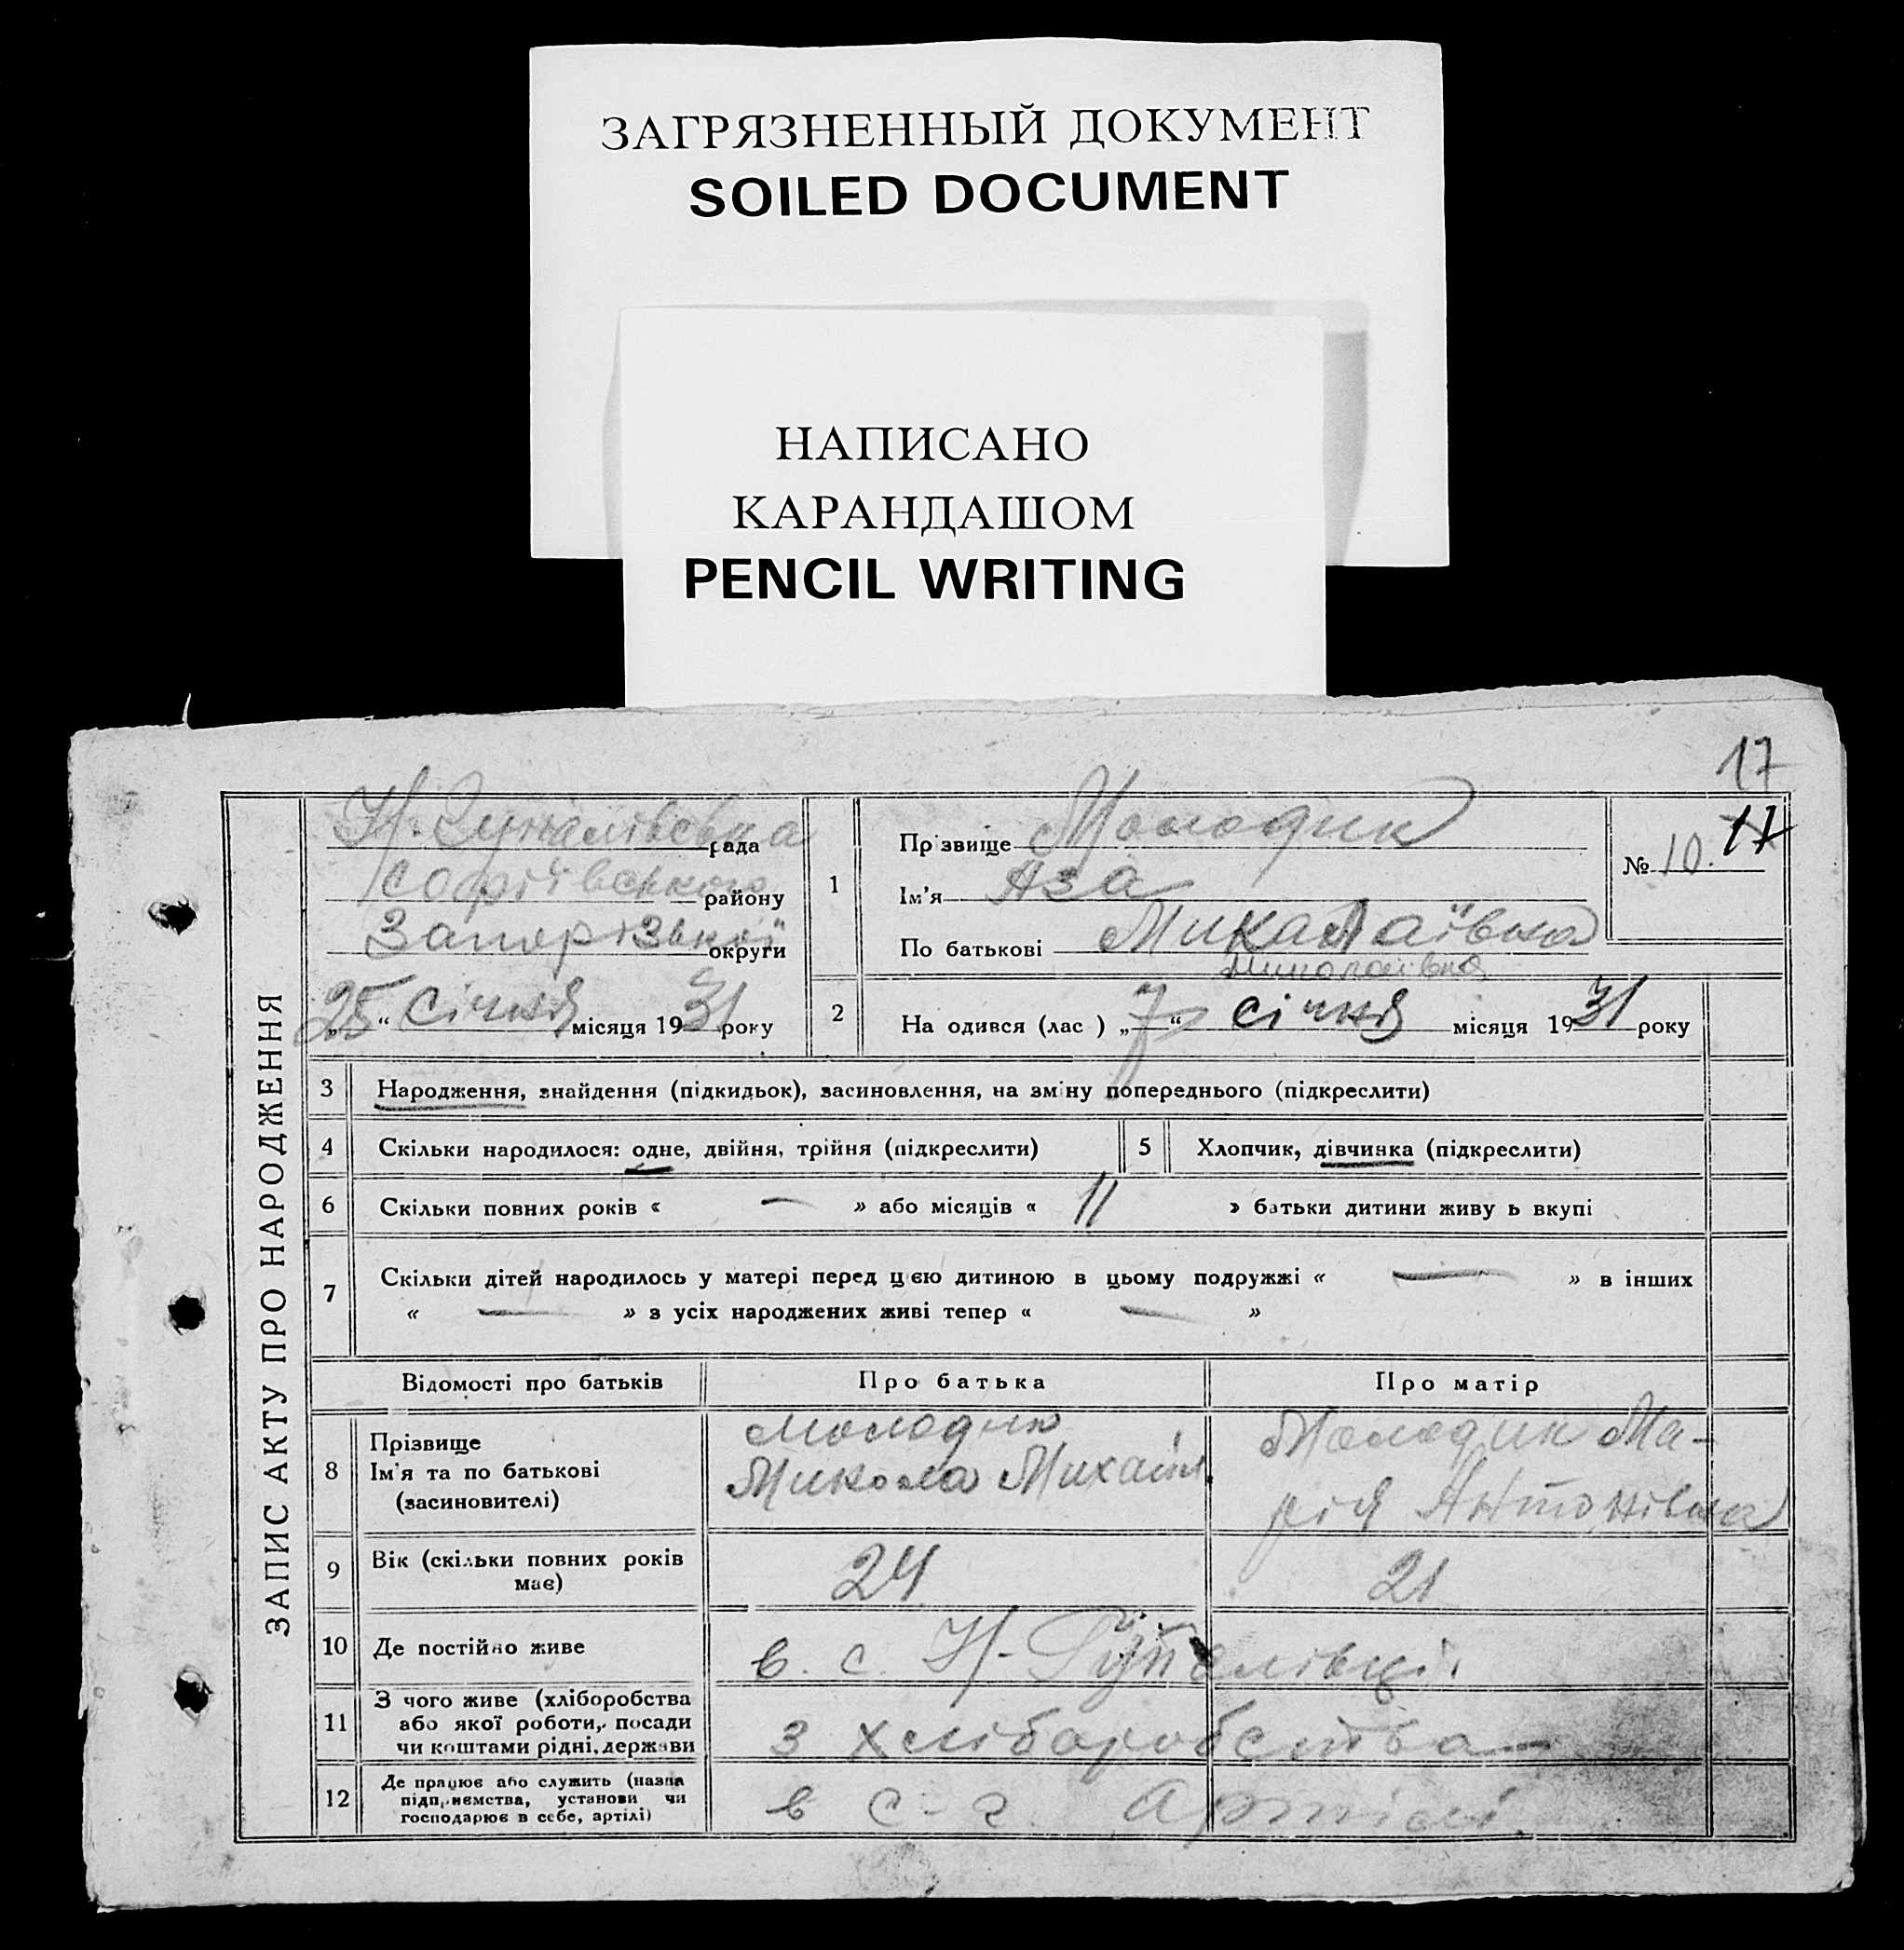 ЗАГРЯЗНЕННЫЙ ДОКУМЕНТ
SOILED DOCUMENT
НАПИСАНО
КАРАНДАШОМ
PENCIL WRITING
17
ЗАПИС АКТУ ПРО НАРОДЖЕННЯ
рада
Софіївського району
Запорізької округи
„25“ Січня місяця 1931 року
1
Прізвище Молодик
Ім'я Аза
По батькові Микалаївна
Миколаївна
№ 10. 17
2
На одився (лас ) „7“ січня місяця 1931 року
3 Народження, знайдення (підкидьок), засиновлення, на зміну попереднього (підкреслити)
4 Скільки народилося: одне, двійня, трійня (підкреслити)
5 Хлопчик, дівчинка (підкреслити)
6 Скільки повних років « — » або місяців « 11 » батьки дитини живу ь вкупі
7 Скільки дітей народилось у матері перед цією дитиною в цьому подружжі « — » в інших
« — » з усіх народжених живі тепер « — »
Відомості про батьків Про батька Про матір
8 Прізвище
Ім'я та по батькові
(засиновителі)
Молодик
Микола Михайл.
Молодик Ма-
рія Антонівна
9 Вік (скільки повних років
має)
24 21
10 Де постійно живе в. с. Н-Гупалівці.
11 З чого живе (хліборобства
або якої роботи, посади
чи коштами рідні, держави
з хліборобства —
12 Де працює або служить (назва
підприємства, установи чи
господарює в себе, артілі)
в с-г. Артілі.